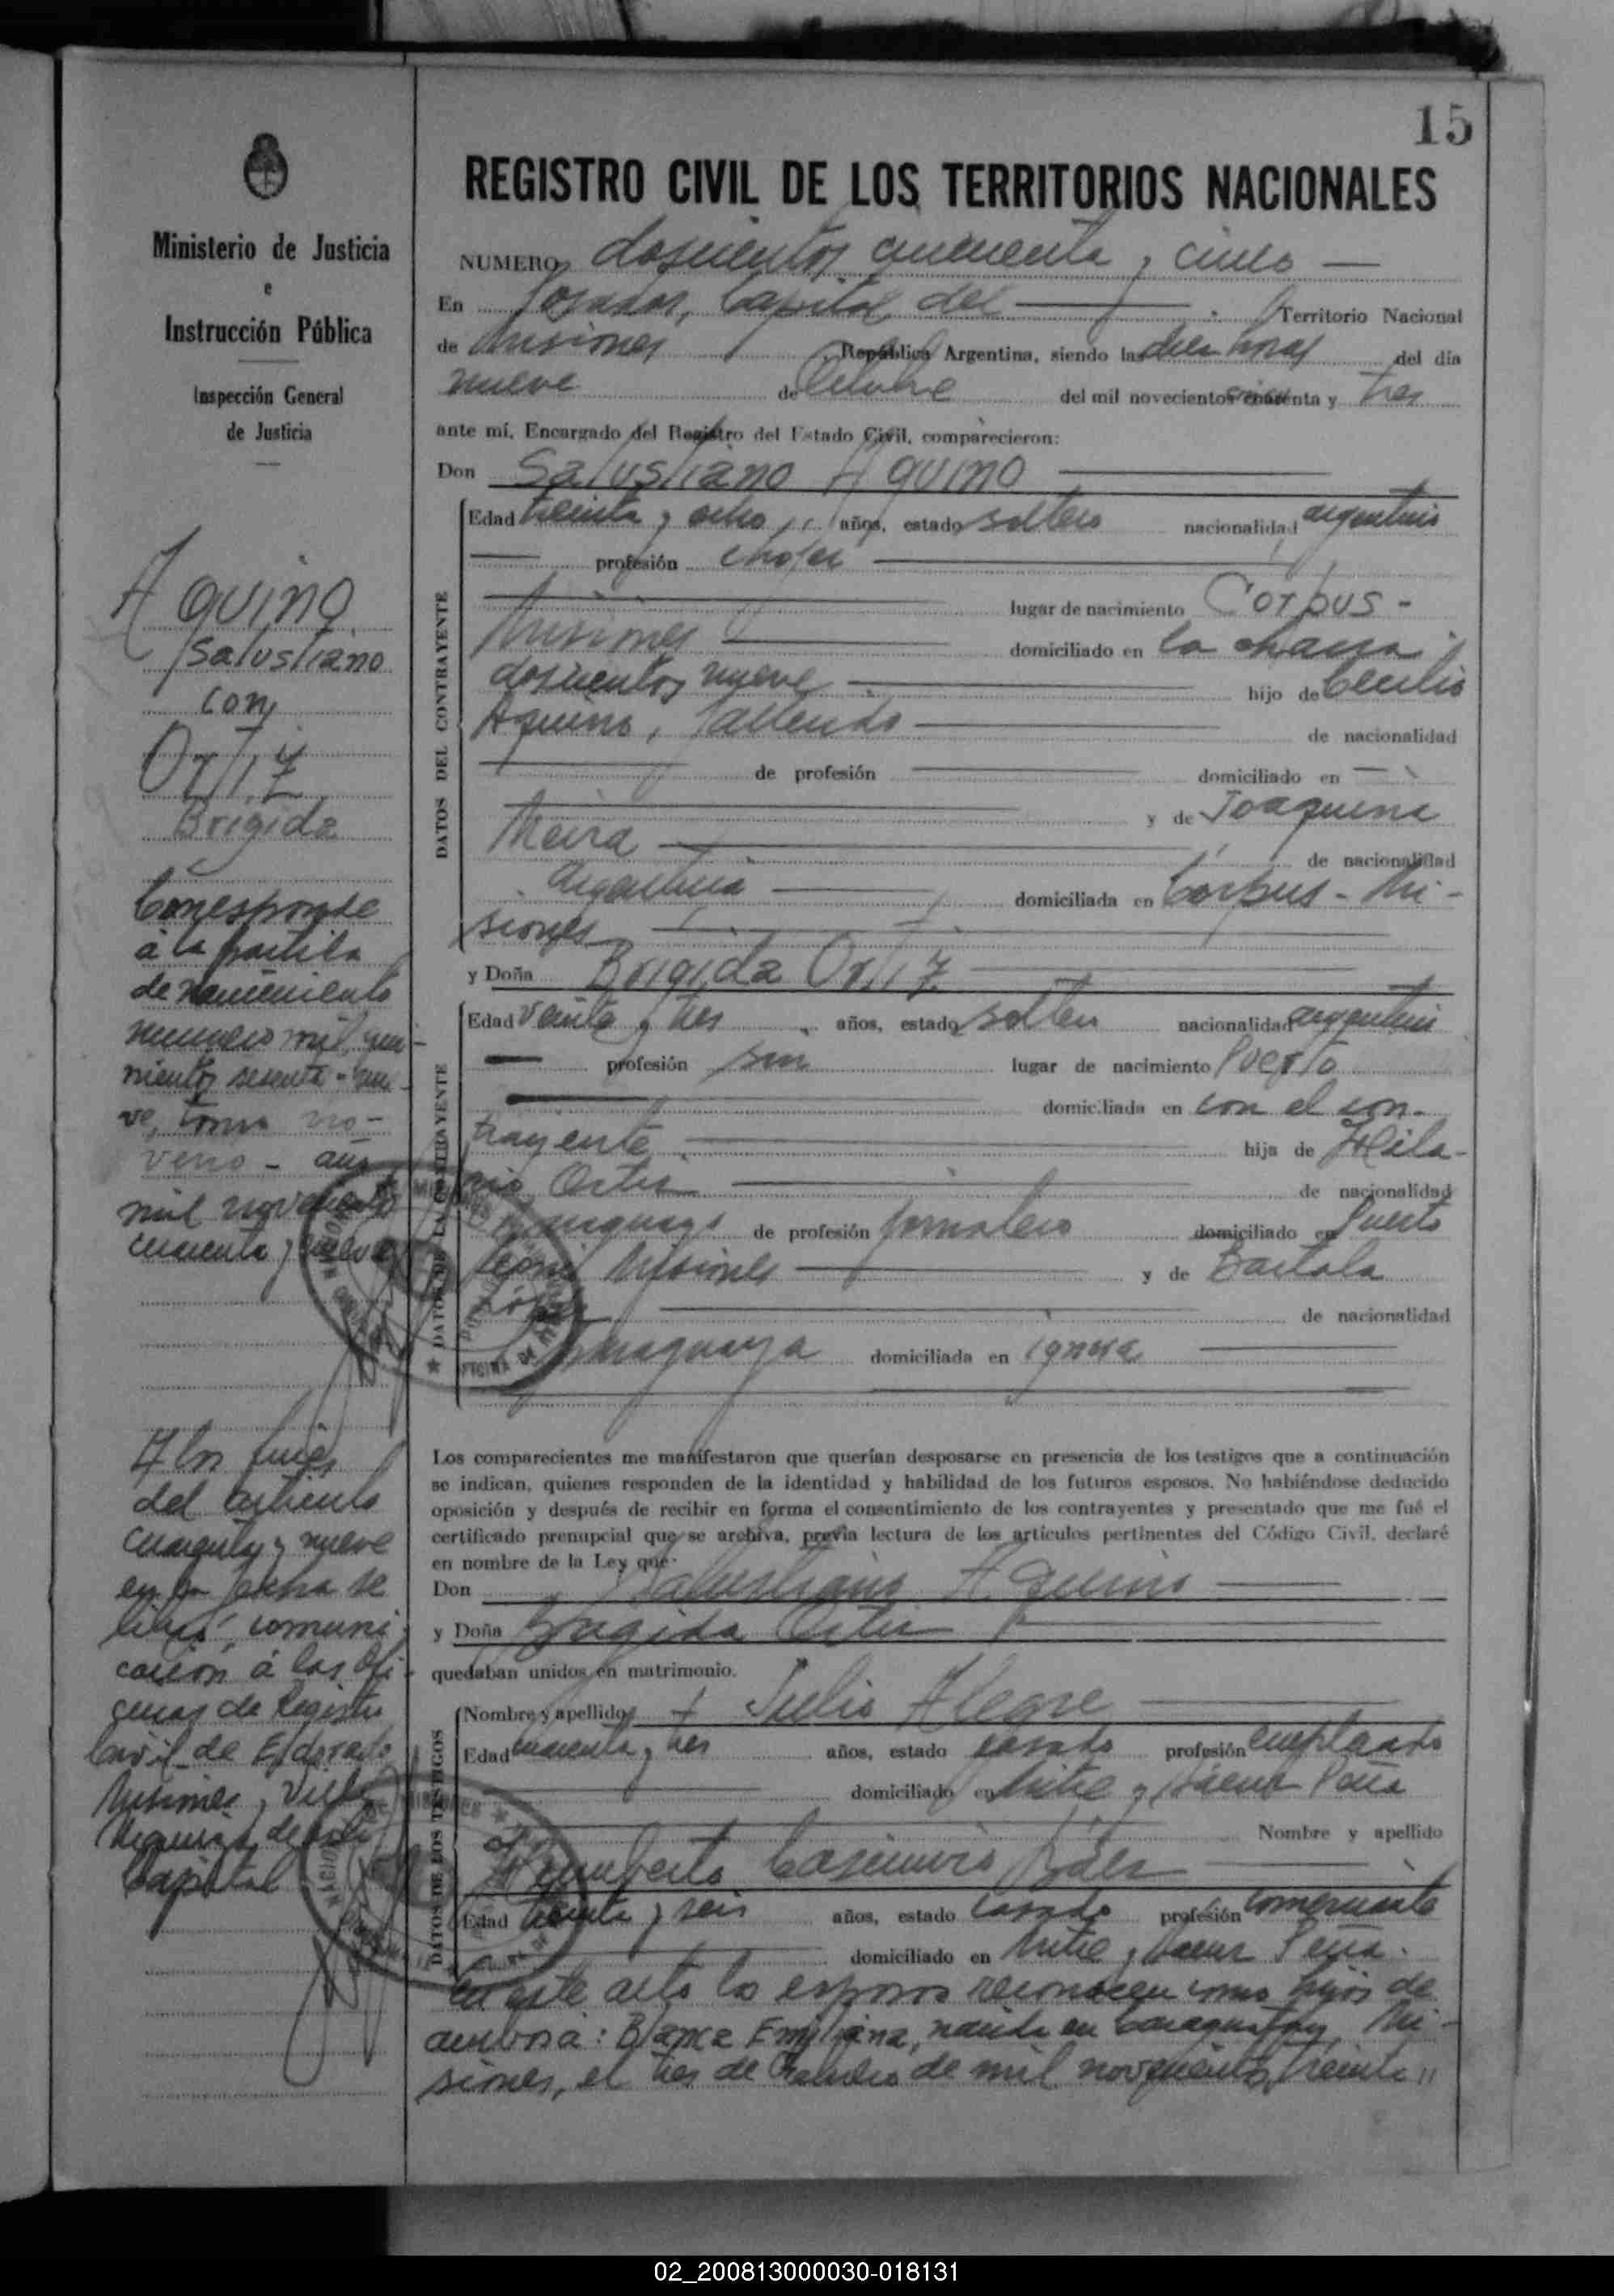 15
Ministerio de Justicia
e
Instrucción Pública
Inspección General
de Justicia
REGISTRO CIVIL DE LOS TERRITORIOS NACIONALES
NUMERO doscientos cincuenta y cinco
En Posadas, Capital del Territorio Nacional
de Misiones República Argentina, siendo las diez horas del día
nueve de Octubre del mil novecientos cincuenta y tres
ante mí, Encargado del Registro del Estado Civil, comparecieron:
Don Salustiano Aquino
DATOS DEL CONTRAYENTE
Edad treinta y ocho años, estado soltero nacionalidad argentino
profesión chofer
lugar de nacimiento Corpus -
Misiones domiciliado en la chacra
doscientos nueve hijo de Cecilio
Aquino, fallecido de nacionalidad
de profesión domiciliado en
y de Joaquina
Meira de nacionalidad
Argentina domiciliada en Corpus - Mi-
siones
y Doña Brigida Ortiz
DATOS DE LA CONTRAYENTE
Edad veinte y tres años, estado soltera nacionalidad argentina
profesión sin lugar de nacimiento Puerto
domiciliada en con el con-
trayente hija de Hila-
rio Ortiz de nacionalidad
Paraguayo de profesión jornalero domiciliado en Puerto
Leoni Misiones y de Bartola
López de nacionalidad
Paraguaya domiciliada en ignora
Los comparecientes me manifestaron que querían desposarse en presencia de los testigos que a continuación
se indican, quienes responden de la identidad y habilidad de los futuros esposos. No habiéndose deducido
oposición y después de recibir en forma el consentimiento de los contrayentes y presentado que me fué el
certificado prenupcial que se archiva, previa lectura de los artículos pertinentes del Código Civil, declaré
en nombre de la Ley que
Don Salustiano Aquino
y Doña Brigida Ortiz
quedaban unidos en matrimonio.
DATOS DE LOS TESTIGOS
Nombre y apellido Julio Alegre
Edad cuarenta y tres años, estado casado profesión empleado
domiciliado en Mitre y Sáenz Peña
Nombre y apellido
Humberto Casimiro Báez
Edad treinta y seis años, estado casado profesión comerciante
domiciliado en Mitre y Saenz Peña.
En este acto los esposos reconocen como hijos de
ambos a: Blanca Emiliana, nacida en Caraguatay, Mi-
siones, el tres de de mil novecientos treinta
Aquino
Salustiano
con
Ortiz
Brigida
Corresponde
a la partida
de nacimiento
numero mil, qui-
nientos sesenta - nue-
ve, tomo no-
veno - año
mil novecientos
cuarenta y nueve
A los fines
del artículo
cuarenta y nueve
en la fecha se
libró comuni-
cación a las Ofi-
cinas de Registro
Civil de Eldorado
Misiones, Villa
Capital
02_200813000030-018131